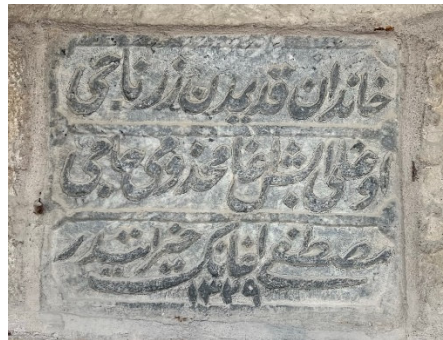 خاندان قدیمدن زرناجی
اوغلی ابش اغا مخدومی حاجی
مصطفی اغانک خیراتیدر
١٣٢٩